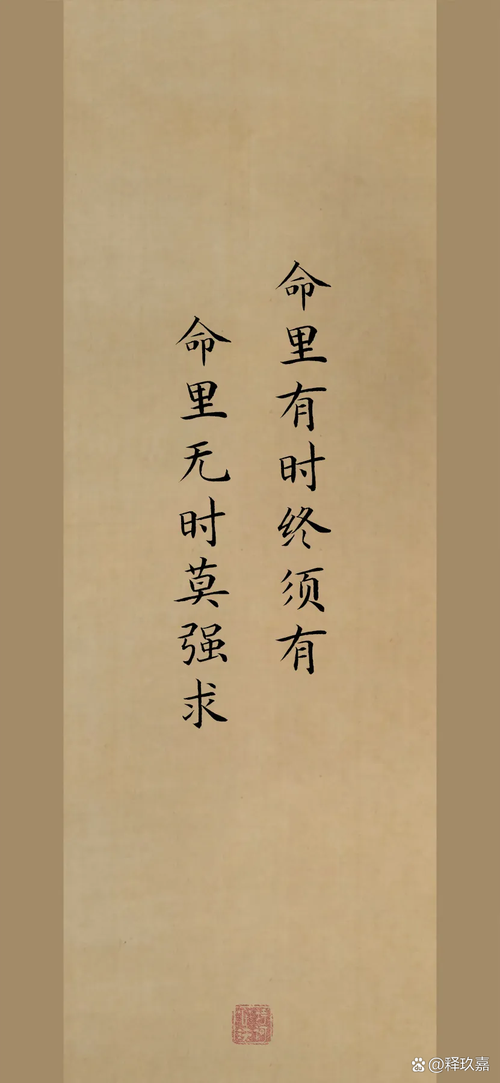 命里有时终须有
命里无时莫强求
@释玖嘉